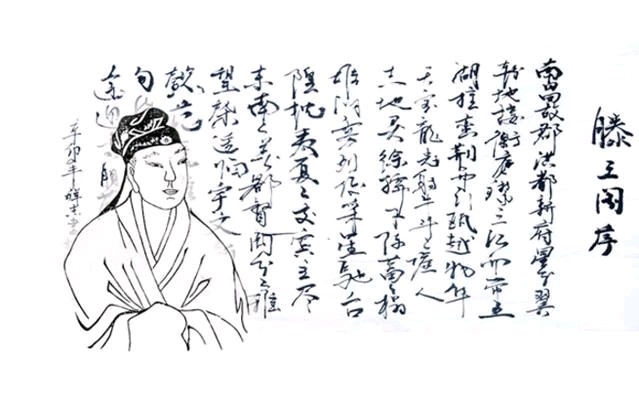 滕王阁序
南昌故郡洪都新府星分翼
轸地接衡庐襟三江而带五
湖控蛮荆而引瓯越物华
天宝龙光射牛斗之墟人
杰地灵徐孺下陈蕃榻
雄州雾列俊采星驰台
隍枕夷夏之交宾主尽
东南之美都督阎公之雅
望棨遥临宇文
懿范
旬 朋
逢迎
辛卯年